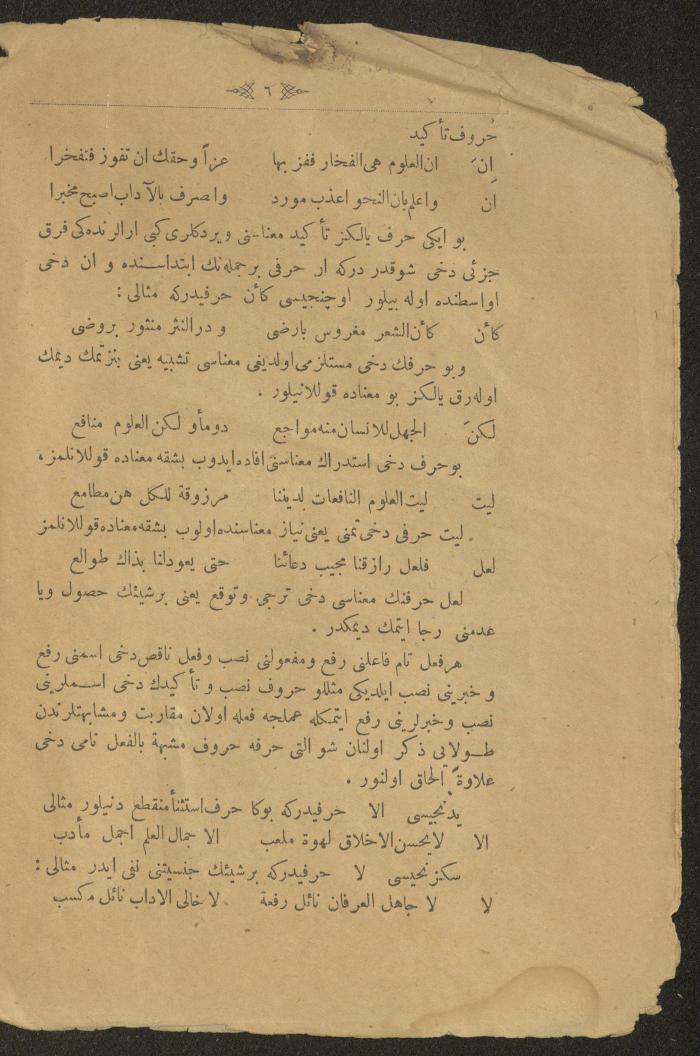 ٦
حُروف تأكيد
اِنَّ ان العلوم هى الفخار ففز بها عزاً وحقك ان تفوز فتفخرا
ان واعلم بان النحو اعذب مورد واصرف بالآداب اصبح مخبرا
بو ايكى حرف يالكز تأكيد معناسنى ويردكلرى كبى ارالرنده كى فرق
جزئى دخى شوقدر دركه ار حرفى بر جمله نك ابتداسنده و ان دخى
اواسطنده اوله بيلور اوچنجيسى كأن حرفيدركه مثالى :
كأن كأن الشعر مغروس بارضى و در النثر منثور بروضى
وبو حرفك دخى مستلزمى اولديغى معناسى تشبيه يعنى بنزتمك ديمك
اوله رق يالكز بو معناده قوللانيلور .
لكنَّ الجهل للانسان منه مواجع دوماً و لكن العلوم منافع
بو حرف دخى استدراك معناسنى افاده ايدوب بشقه معناده قوللانلمز ،
ليت ليت العلوم النافعات لديننا مرزوقة للكل هن مطامع
ليت حرفى دخى تمنى يعنى نياز معناسنده اولوب بشقه معناده قوللانلمز .
لعل فلعل رازقنا مجيب دعائنا حتى يعود لنا بذاك طوالع
لعل حرفنك معناسى دخى ترجى وتوقع يعنى بر شيئك حصول ويا
عدمنى رجا ايتمك ديمكدر .
هر فعل تام فاعلنى رفع ومفعولنى نصب وفعل ناقص دخى اسمنى رفع
و خبرينى نصب ايلديكى مثللو حروف نصب و تأكيدك دخى اسملرينى
نصب وخبرلرينى رفع ايتمكله عملجه فعله اولان مقاربت ومشابهتلرندن
طولايى ذكر اولنان شو التى حرفه حروف مشبهة بالفعل نامى دخى
علاوةً الحاق اولنور .
يدنجيسى الا حرفيدركه بوكا حرف استثنأ منقطع دنيلور مثالى
الا لايحسن الاخلاق لهوة ملعب الا جمال العلم اجمل مأدب
سكزنجيسى لا حرفيدركه بر شيئك جنسيتنى نفى ايدر مثالى :
لا لا جاهل العرفان نائل رفعة لا خالى الاداب نائل مكسب